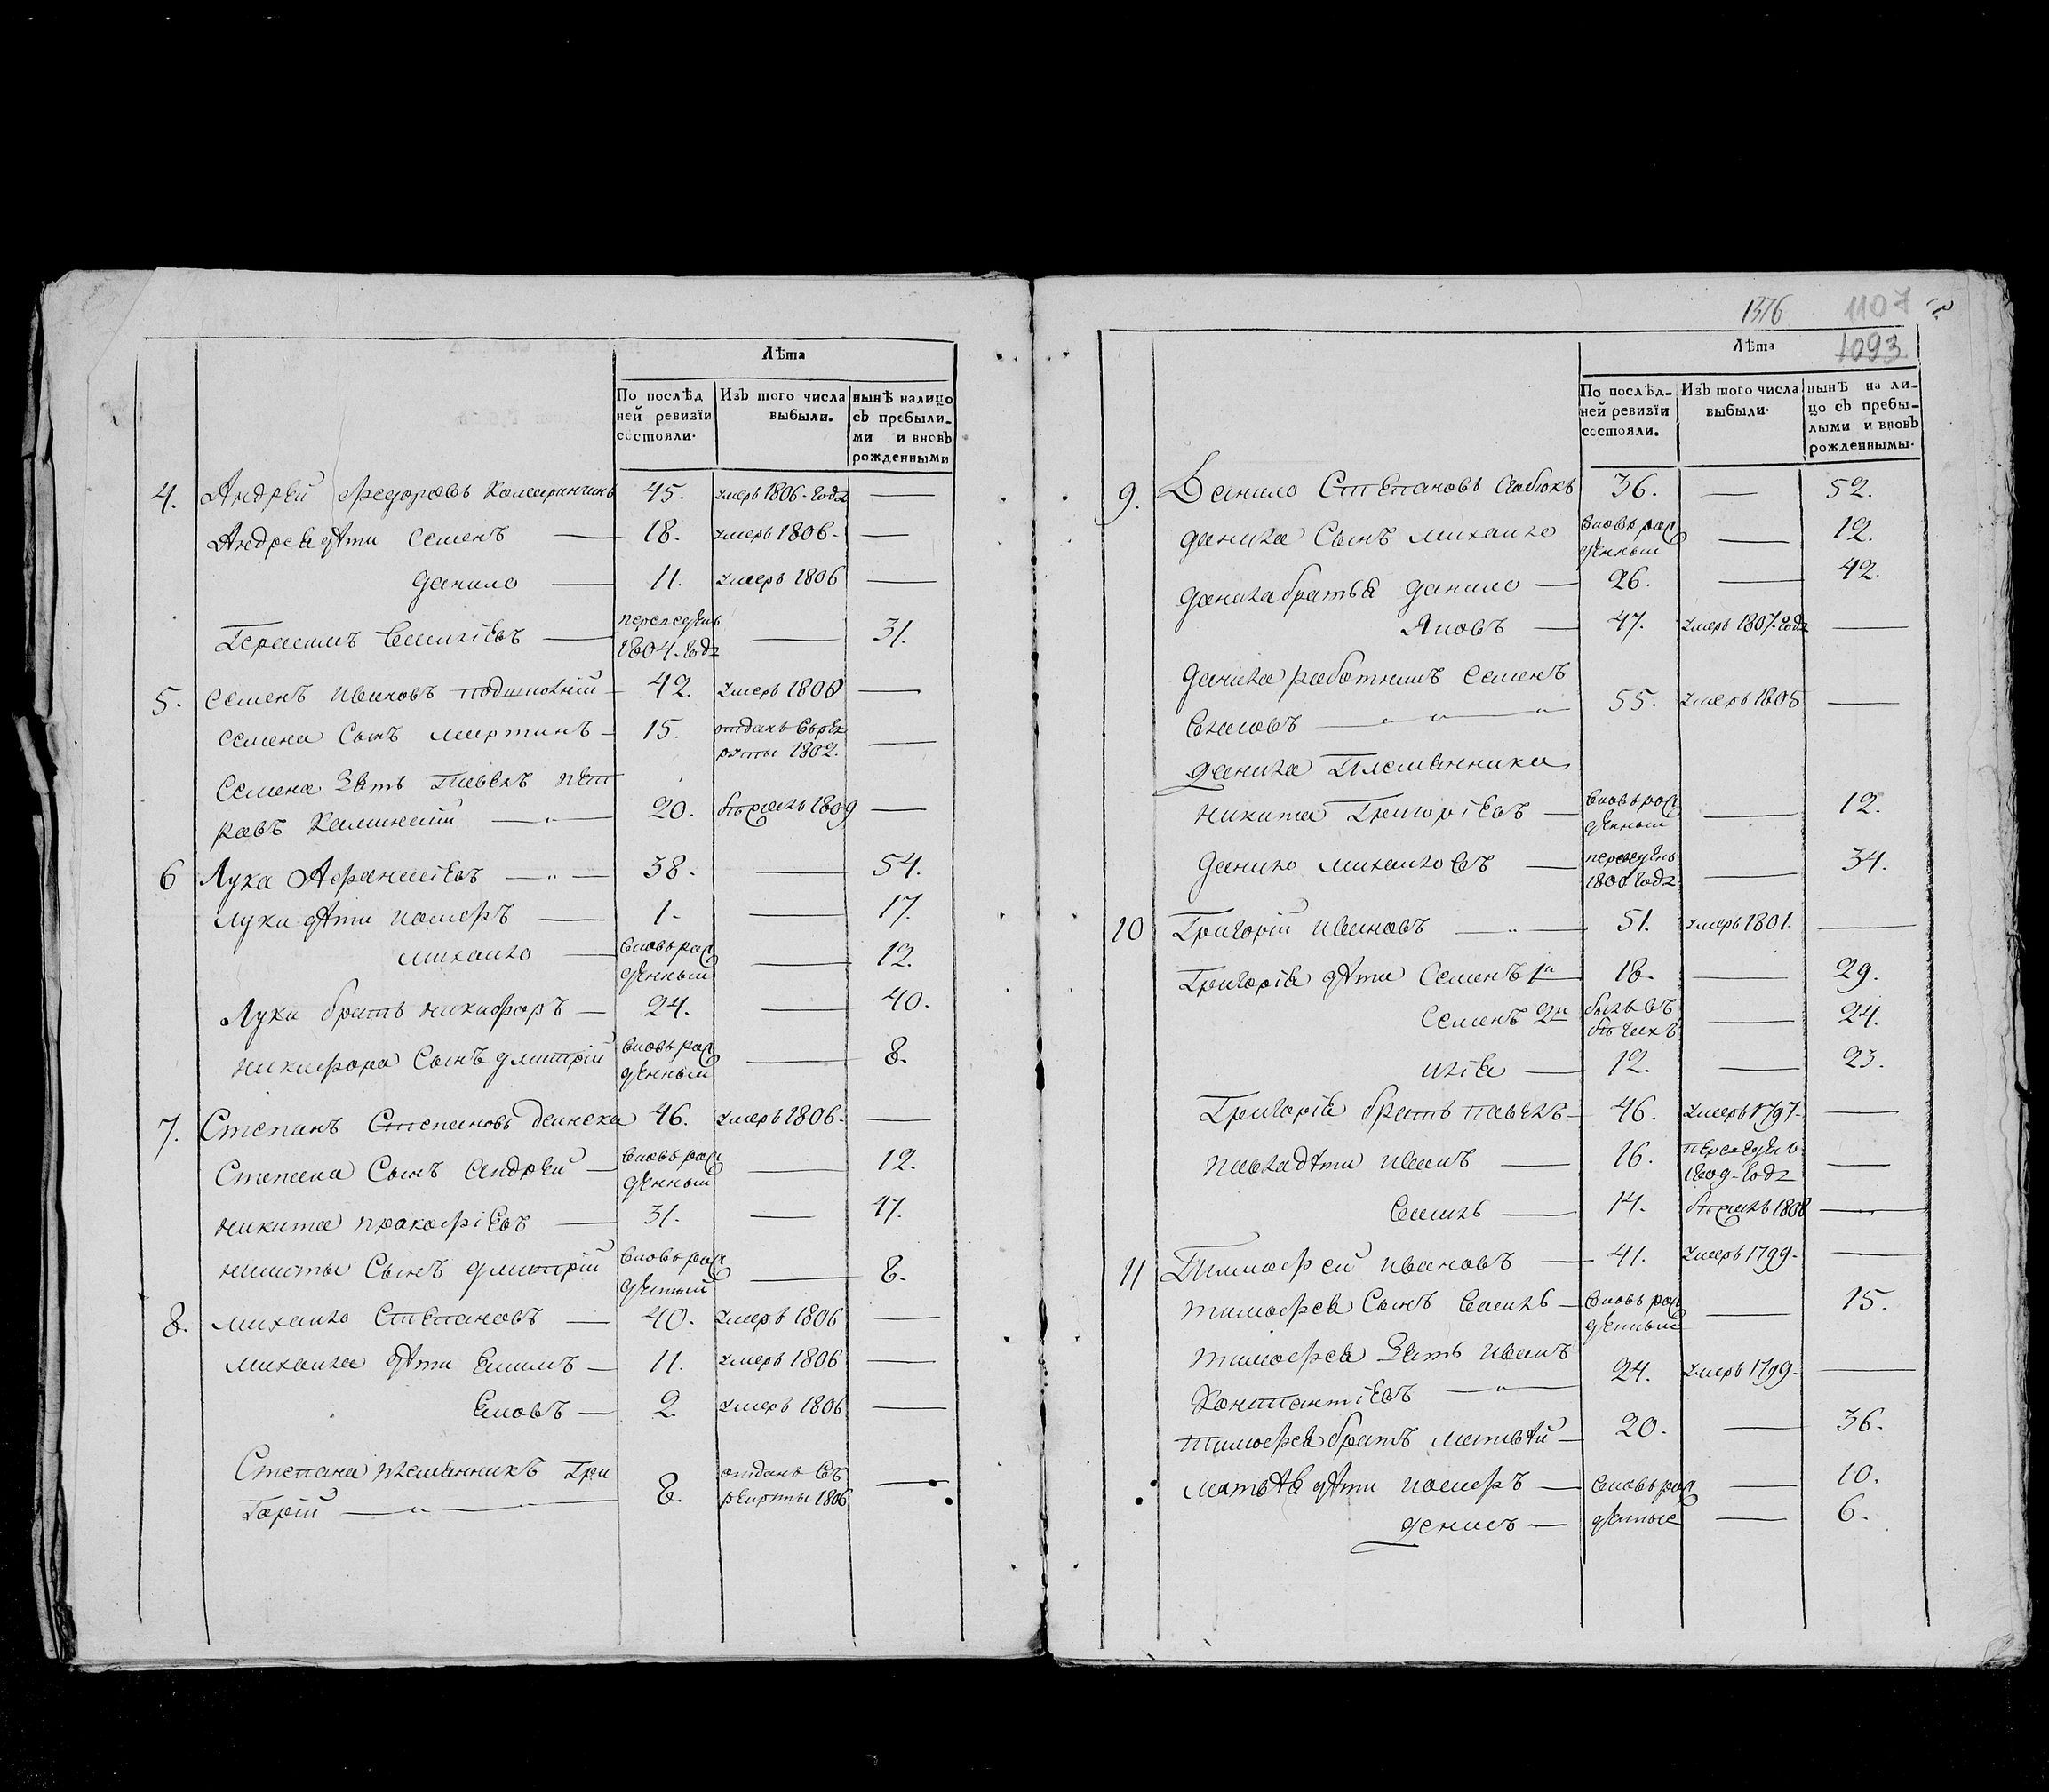 Лѣта
По послѣд Изъ того числа нынѣ налицо
ней ревизїи выбыли. съ пребыли-
состояли. ми и вновь
рожденными
4. Андрей Федоровъ 45. умеръ 1806. года —
Андрея дѣти Семенъ — 18. умеръ 1806. —
Данило — 11. умеръ 1806 —
Герасимъ Васильевъ — переведенъ — 31.
1804. года
5. Семенъ Ивановъ — 42. умеръ 1808 —
Семена Сынъ Мартинъ — 15. отданъ въ рек —
руты 1802.
Семена Зять Павелъ Пет
ровъ — 20. бѣжалъ 1809 —
6 Лука Афанасїевъ — 38. — 54.
Луки дѣти Иосифъ — 1. — 17.
Михайло — вновь рож — 12.
денный
Луки братъ Никифоръ — 24. — 40.
Никифора Сынъ Дмитрїй вновь рож — 8.
денный
7. Степанъ Степановъ Деинека 46. умеръ 1806. —
Степана Сынъ Андрей — вновь рож — 12.
денный
Никита Прокофїевъ — 31. — 47.
Никиты Сынъ Дмитрїй вновь рож — 8.
денный
8. Михайло Степановъ — 40. умеръ 1806 —
Михайла дѣти — 11. умеръ 1806 —
— 2. умеръ 1806 —
Степана племянникъ Гри
горїй — 8. отданъ въ —
рекруты 1806
1376 1107
1093
Лѣта
По послѣд- Изъ того числа нынѣ на ли-
ней ревизїи выбыли. цо съ пребы-
состояли. лыми и вновь
рожденнымы.
9. Данило Степановъ 36. — 52.
Данила Сынъ Михайло вновь рож — 12.
денный
Данила братья Данило — 26. — 42.
Яковъ — 47. умеръ 1807. года —
Данила работникъ Семенъ
55. умеръ 1805 —
Данила Племянники
Никита Григорїевъ — вновь рож — 12.
денный
Данило Михайловъ — переведенъ — 34.
1800 года
10 Григорїй Ивановъ — 51. умеръ 1801. —
Григорїя дѣти Семенъ 1й 18. — 29.
Семенъ 2й былъ въ — 24.
бѣгахъ
Илїя — 12. — 23.
Григорїя братъ Павелъ — 46. умеръ 1797. —
Павла дѣти Иванъ — 16. переведенъ —
1809. года
Василь — 14. бѣжалъ 1808 —
11 Тимофей Ивановъ — 41. умеръ 1799. —
Тимофея Сынъ Василь — вновь рож — 15.
денный
Тимофея Зять Иванъ
24. умеръ 1799. —
Тимофея братъ Матвѣй — 20. — 36.
Матвѣя дѣти Иосифъ — вновь рож — 10.
Денисъ — денные — 6.